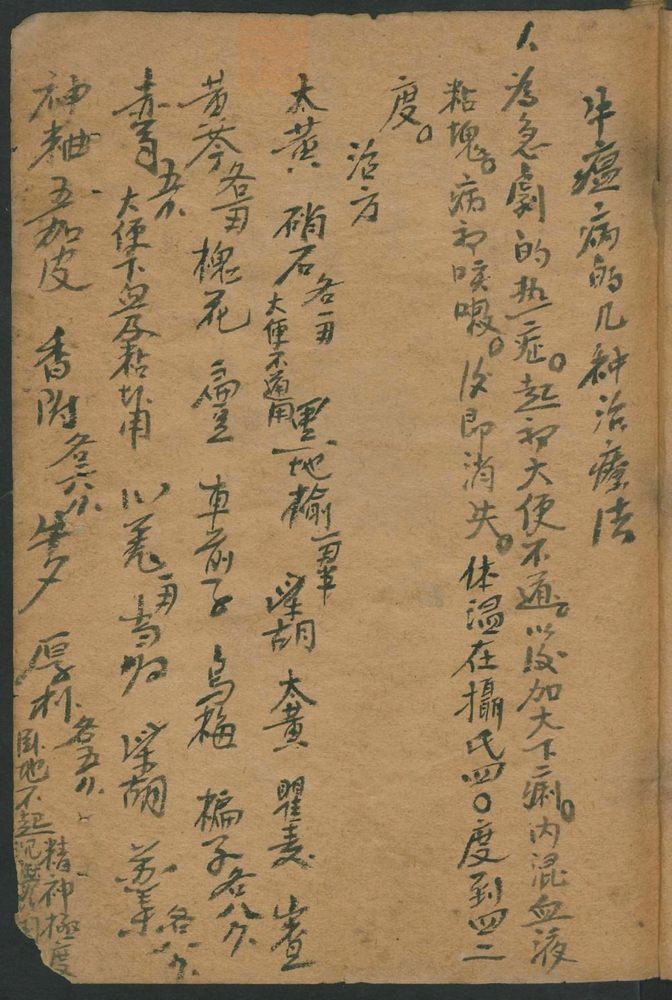 牛瘟病的几种治療法
1、為急劇的热症。起初大便不通。以後加大下痢。内混血液
粘塊。病初咳嗽。後即消失。体温在攝氏四〇度到四二
度。
治方
大黄 硝石各一両 大便不通用 黑地榆一両半 柴胡 大黄 瞿麦 山査
黄芩各一両 槐花 扁豆 車前子 烏梅 梔子各八分
青 五分 大便下血及粘塊用 川羌一両 当归 柴胡 苏叶各八分
神粬 五加皮 香附各六分 厚朴各五分 精神極度
卧地不起